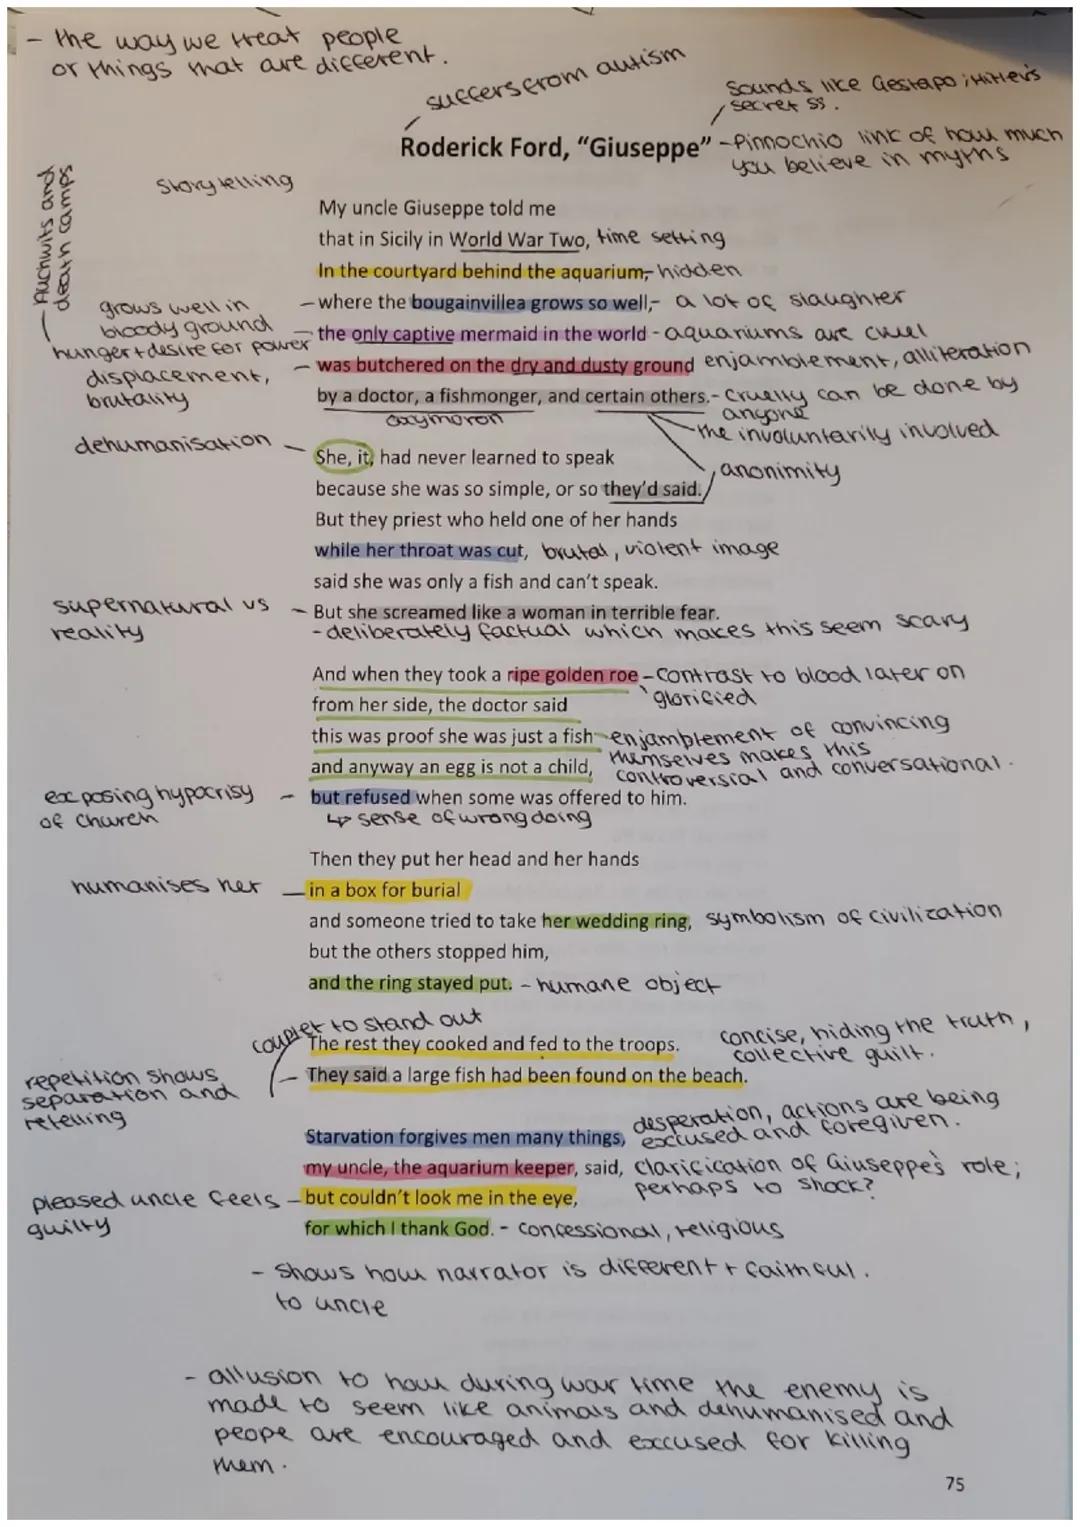 - the way we treat people
or things that are different.
suffers from autism
Sounds like Gestapo; Hitler's
secret ss.
Roderick Ford, “Giuseppe”
- Pinnochio link of how much
you believe in myths
Storytelling
Auchwits and
death camps
My uncle Giuseppe told me
that in Sicily in World War Two, time setting
In the courtyard behind the aquarium, - hidden
where the bougainvillea grows so well, - a lot of slaughter
grows well in
bloody ground
the only captive mermaid in the world - aquariums are cruel
hunger + desire for power
was butchered on the dry and dusty ground enjamblement, alliteration
displacement,
brutality
by a doctor, a fishmonger, and certain others. - Cruelly can be done by
anyone
oxymoron
- the involuntarily involved
dehumanisation
She, it, had never learned to speak
anonimity
because she was so simple, or so they'd said.
But they priest who held one of her hands
while her throat was cut, brutal, violent image
said she was only a fish and can't speak.
supernatural vs
reality
- But she screamed like a woman in terrible fear.
- deliberately factual which makes this seem scary
And when they took a ripe golden roe - contrast to blood later on
glorified
from her side, the doctor said
this was proof she was just a fish - enjamblement of convincing
themselves makes this
controversial and conversational.
and anyway an egg is not a child,
exposing hypocrisy
of church
- but refused when some was offered to him.
↳ sense of wrong doing
Then they put her head and her hands
humanises her
in a box for burial
and someone tried to take her wedding ring, symbolism of civilization
but the others stopped him,
and the ring stayed put. - humane object
couplet to stand out
The rest they cooked and fed to the troops.
concise, hiding the truth,
collective guilt.
They said a large fish had been found on the beach.
repetition shows
separation and
retelling
Starvation forgives men many things,
desperation, actions are being
excused and foregiven.
my uncle, the aquarium keeper, said, clarification of Giuseppe's role;
perhaps to shock?
pleased uncle feels
guilty
but couldn't look me in the eye,
for which I thank God. - confessional, religious
- Shows how narrator is different + faithful.
to uncle
- allusion to how during war time the enemy is
made to seem like animals and dehumanised and
peope are encouraged and excused for killing
them.
75